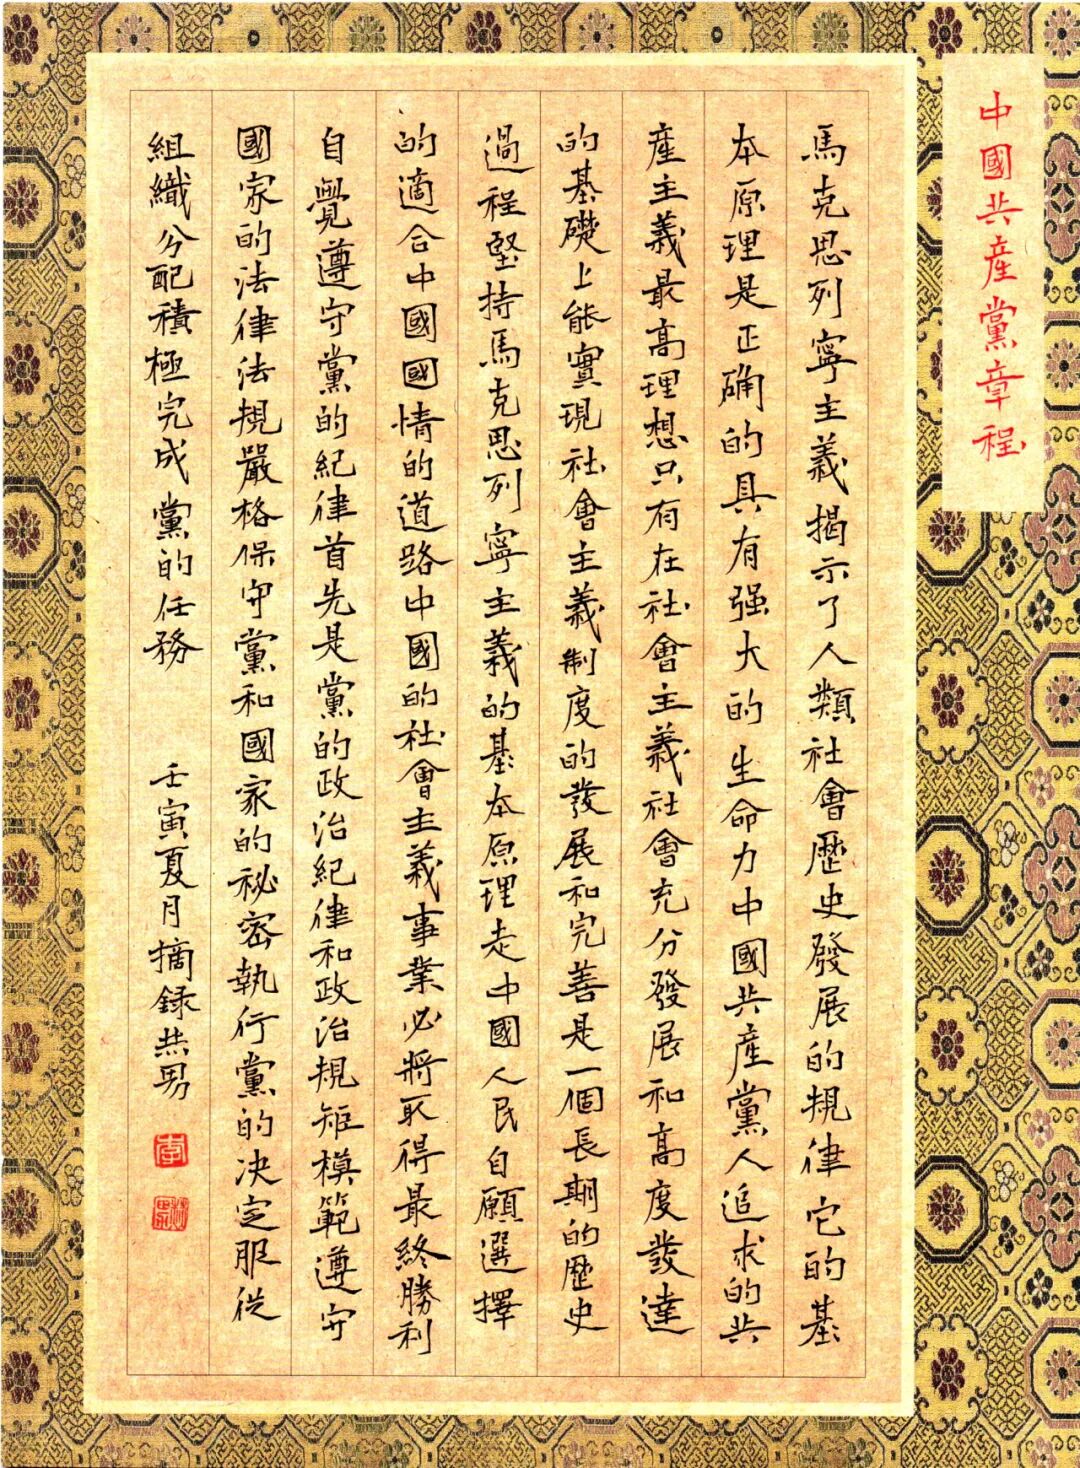 中國共產黨章程
馬克思列寧主義揭示了人類社會歷史發展的規律它的基
本原理是正确的具有强大的生命力中國共產黨人追求的共
產主義最高理想只有在社會主義社會充分發展和高度發達
的基礎上能實現社會主義制度的發展和完善是一個長期的歷史
過程堅持馬克思列寧主義的基本原理走中國人民自願選擇
的適合中國國情的道路中國的社會主義事業必將取得最終勝利
自覺遵守黨的紀律首先是黨的政治紀律和政治規矩模範遵守
國家的法律法規嚴格保守黨和國家的秘密執行黨的决定服從
組織分配積極完成黨的任務 壬寅夏月摘録
李